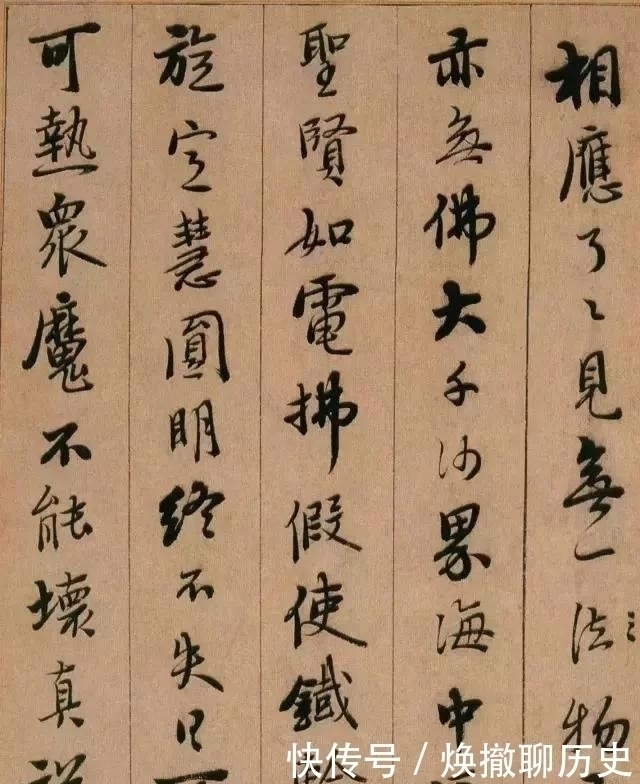 相應了〻見無一法物
亦無佛大千沙界海中
聖賢如電拂假使鐵
旋定慧圓明終不失日
可熱衆魔不能壞真
快传号 / 焕撤聊历史